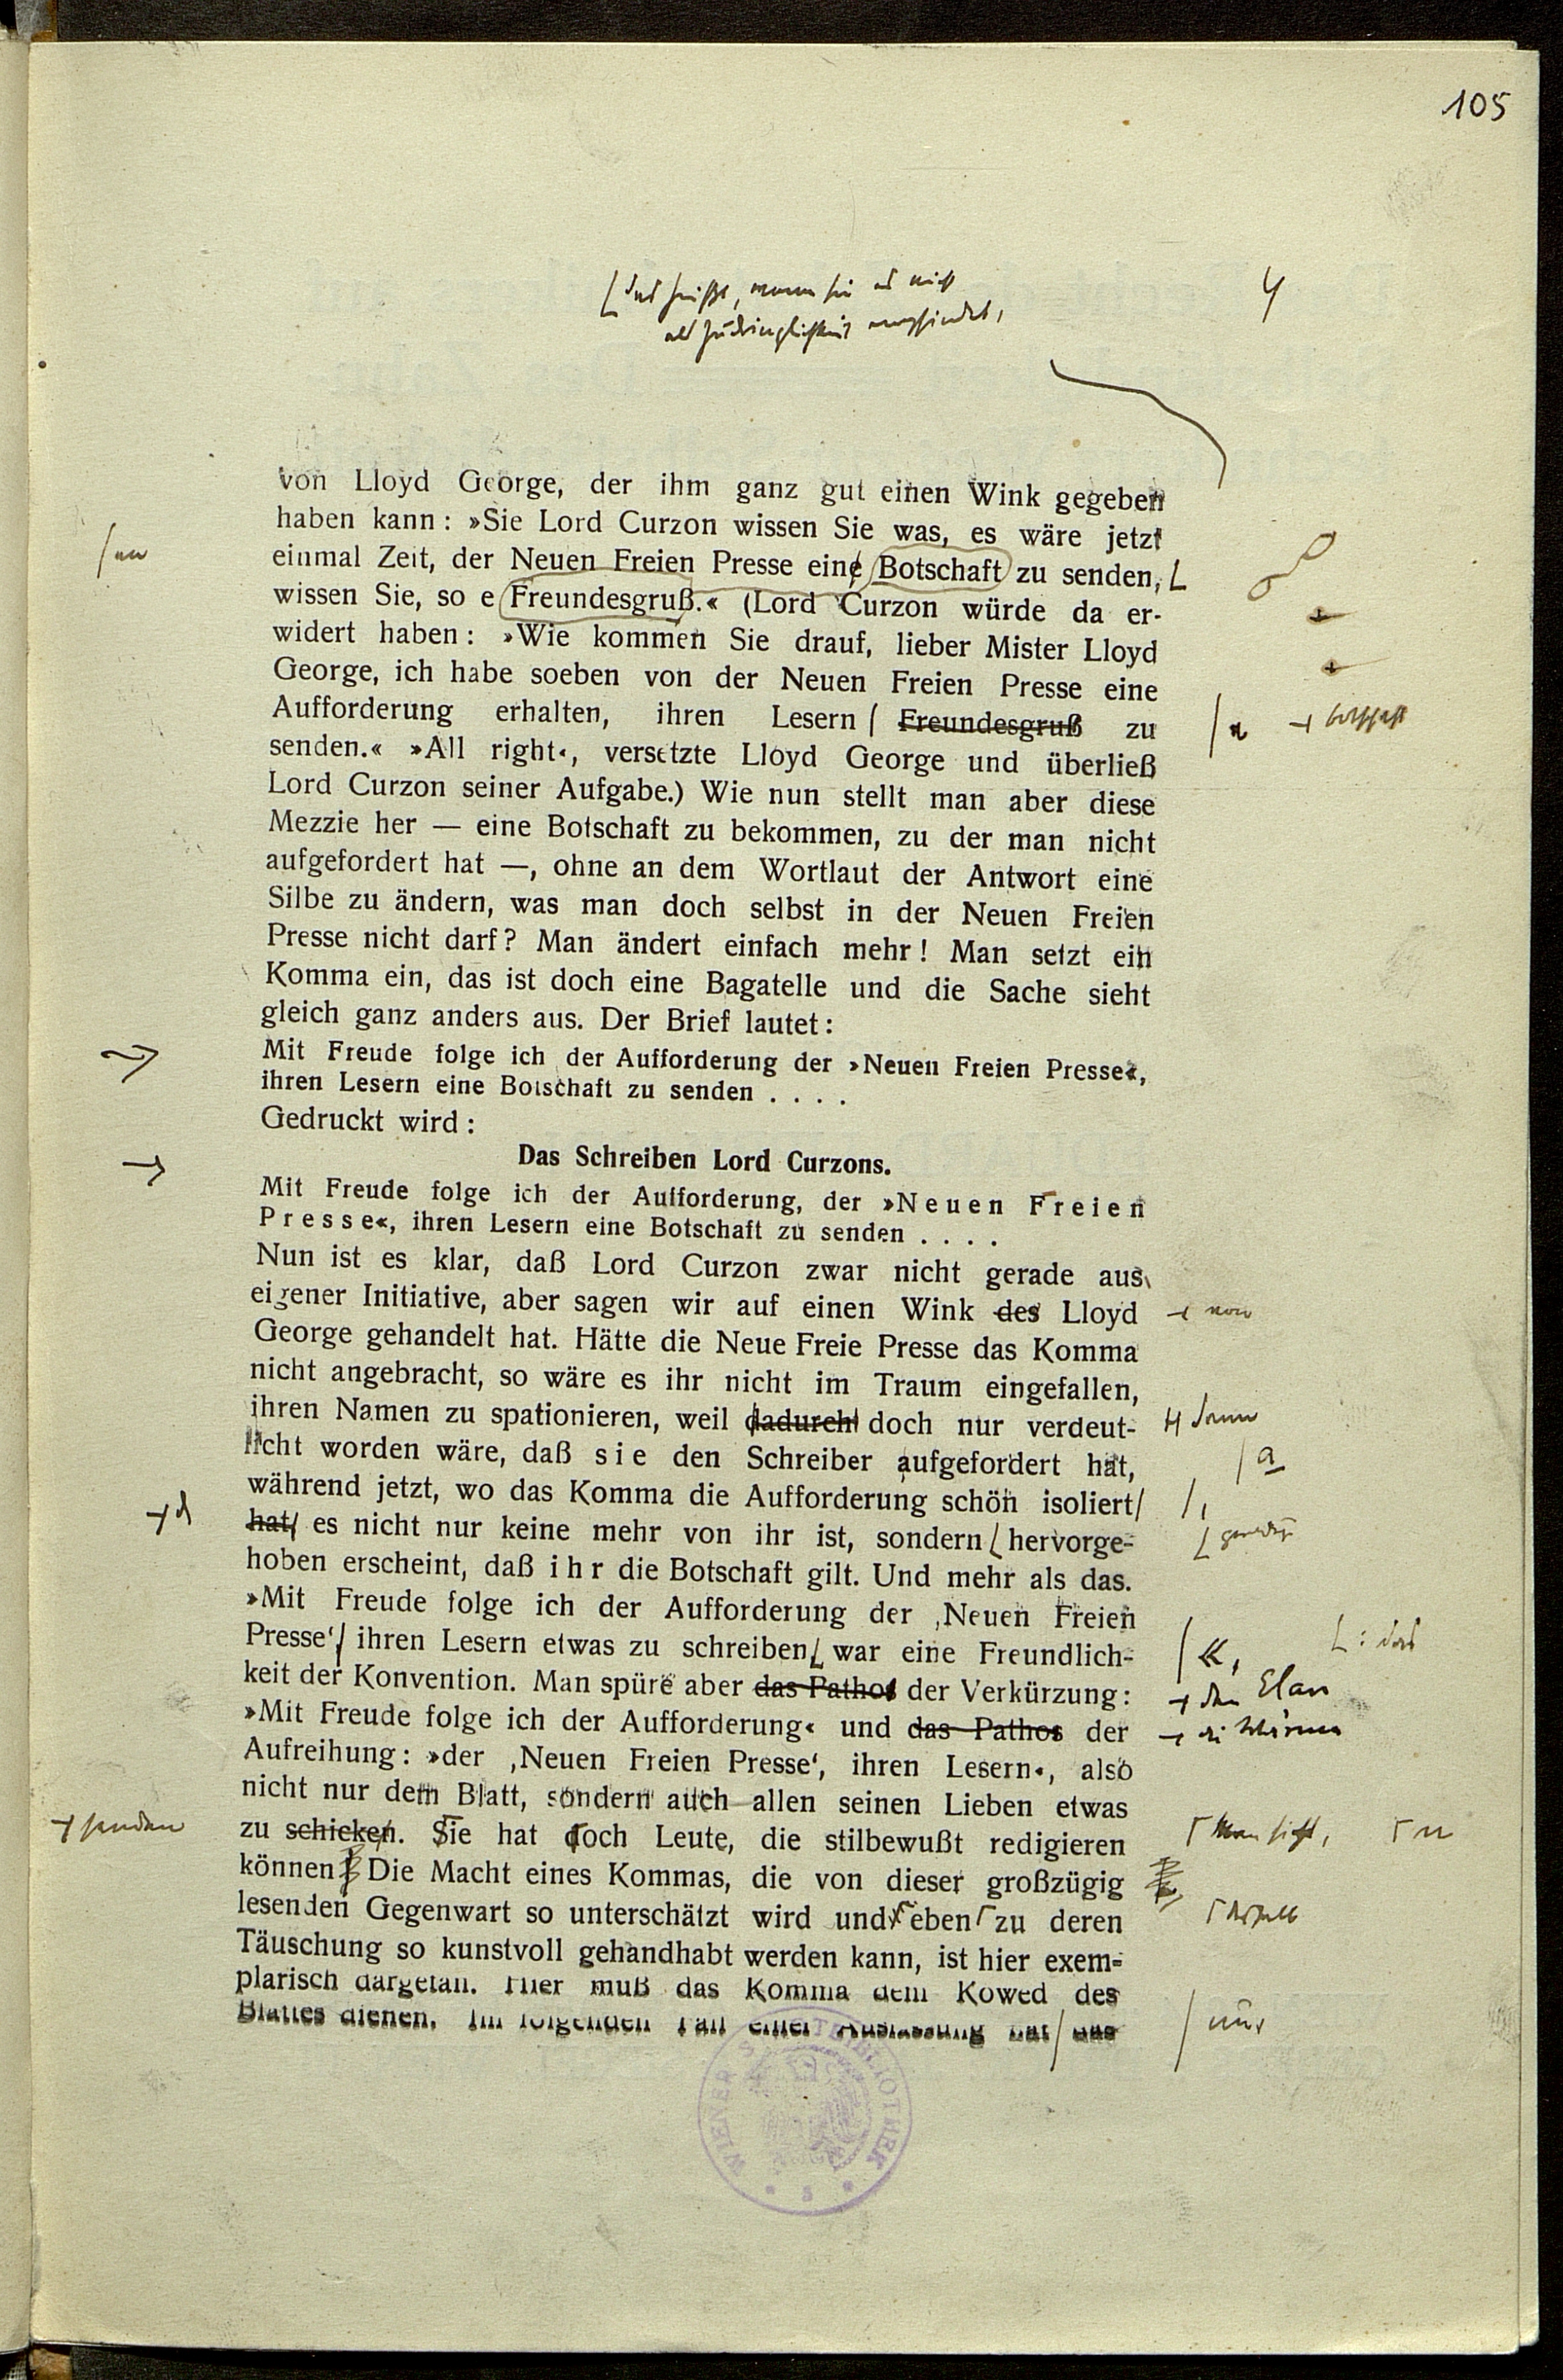 105
4
[das heißt, wenn sie es nicht
als Zudringlichkeit empfindet,
von Lloyd George, der ihm ganz gut einen Wink gegeben
haben kann: »Sie Lord Curzon wissen Sie was, es wäre jetzt
einmal Zeit, der Neuen Freien Presse eine Botschaft zu senden,
wissen Sie, so e Freundesgruß.« (Lord Curzon würde da er-
widert haben: »Wie kommen Sie drauf, lieber Mister Lloyd
George, ich habe soeben von der Neuen Freien Presse eine
Aufforderung erhalten, ihren Lesern Freundesgruß zu
Botschaft
senden.« »All right«, versetzte Lloyd George und überließ
Lord Curzon seiner Aufgabe.) Wie nun stellt man aber diese
Mezzie her — eine Botschaft zu bekommen, zu der man nicht
aufgefordert hat —, ohne an dem Wortlaut der Antwort eine
Silbe zu ändern, was man doch selbst in der Neuen Freien
Presse nicht darf? Man ändert einfach mehr! Man setzt ein
Komma ein, das ist doch eine Bagatelle und die Sache sieht
gleich ganz anders aus. Der Brief lautet:
Mit Freude folge ich der Aufforderung der »Neuen Freien Presse«,
ihren Lesern eine Botschaft zu senden . . . .
Gedruckt wird:
Das Schreiben Lord Curzons.
Mit Freude folge ich der Aufforderung, der »Neuen Freien
Presse«, ihren Lesern eine Botschaft zu senden . . . .
Nun ist es klar, daß Lord Curzon zwar nicht gerade aus
eigener Initiative, aber sagen wir auf einen Wink des Lloyd
von
George gehandelt hat. Hätte die Neue Freie Presse das Komma
nicht angebracht, so wäre es ihr nicht im Traum eingefallen,
ihren Namen zu spationieren, weil dadurch doch nur verdeut-
dann
licht worden wäre, daß sie den Schreiber aufgefordert hat,
a
während jetzt, wo das Komma die Aufforderung schön isoliert
hat, es nicht nur keine mehr von ihr ist, sondern hervorge-
geradezu
hoben erscheint, daß ihr die Botschaft gilt. Und mehr als das.
»Mit Freude folge ich der Aufforderung der ‚Neuen Freien
Presse‘, ihren Lesern etwas zu schreiben, war eine Freundlich-
«, : das
keit der Konvention. Man spüre aber das Pathos der Verkürzung:
den Elan
»Mit Freude folge ich der Aufforderung« und das Pathos der
die Wärme
Aufreihung: »der ‚Neuen Freien Presse‘, ihren Lesern«, also
nicht nur dem Blatt, sondern auch allen seinen Lieben etwas
zu schicken. Sie hat doch Leute, die stilbewußt redigieren
senden Man sieht,
können! Die Macht eines Kommas, die von dieser großzügig
lesenden Gegenwart so unterschätzt wird und eben zu deren
deshalb
Täuschung so kunstvoll gehandhabt werden kann, ist hier exem-
plarisch dargetan. Hier muß das Komma dem Kowed des
Blattes dienen. Im folgenden Fall einer Auslassung hat das
nur
WIENER STADTBIBLIOTHEK